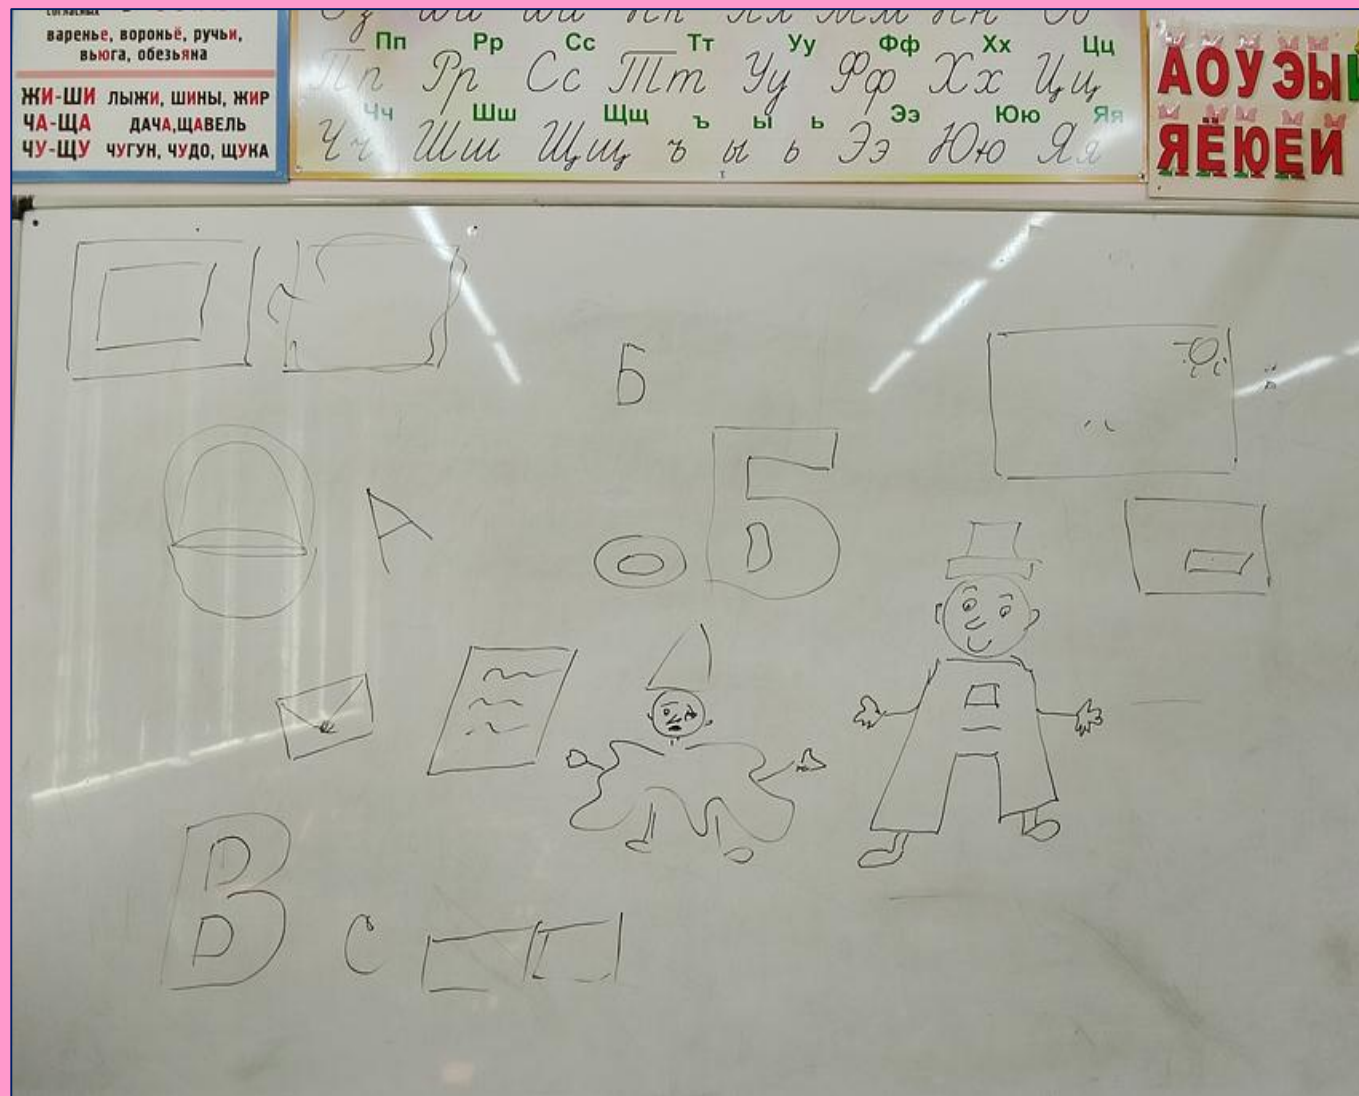 согласных
варенье, вороньё, ручьи,
вьюга, обезьяна
ЖИ-ШИ ЛЫЖИ, ШИНЫ, ЖИР
ЧА-ЩА ДАЧА,ЩАВЕЛЬ
ЧУ-ЩУ ЧУГУН, ЧУДО, ЩУКА
Пп Рр Сс Тт Уу Фф Хх Цц
Пп Рр Сс Тт Уу Фф Хх Цц
Чч Шш Щщ ъ ы ь Ээ Юю Яя
Чч Шш Щщ ъ ы ь Ээ Юю Яя
АОУЭЫ
ЯЁЮЕИ
Б
Б
А
В
С